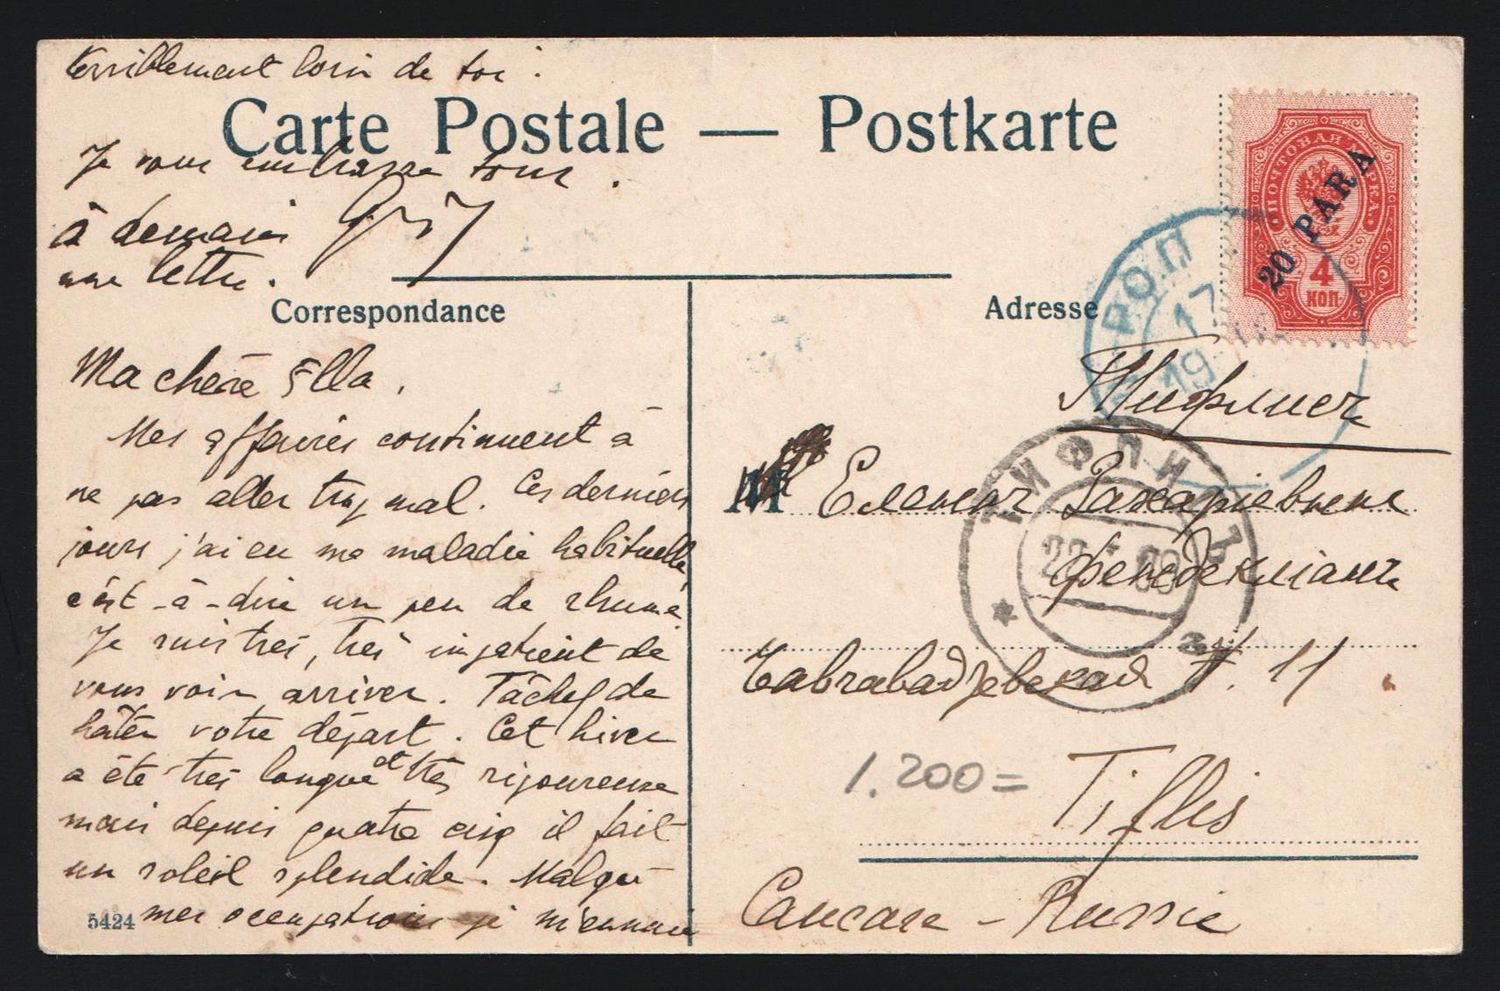 terriblement loin de toi.
Carte Postale — Postkarte
Je vous embrasse tous.
à demain
une lettre.
Correspondance
Adresse
Ma chère Ella.
Mes affaires continuent à
ne pas aller trop mal. Ces derniers
jours j'ai eu ma maladie habituelle,
c'est-à-dire un peu de rhume.
Je suis très, très impatient de
vous voir arriver. Tâchez de
hâter votre départ. Cet hiver
a été très longue et très rigoureuse
mais depuis quatre cinq il fait
un soleil splendide. Malgré
mes occupations je m'ennuie
5424
ПОЧТОВАЯ МАРКА
20 PARA
4
КОП.
РОП
17
19
Тифлисъ
ТИФЛИСЪ
M
Еленѣ Захарiевнѣ
Чавчавадзевская №. 11
1.200=
Tiflis
Caucase - Russie